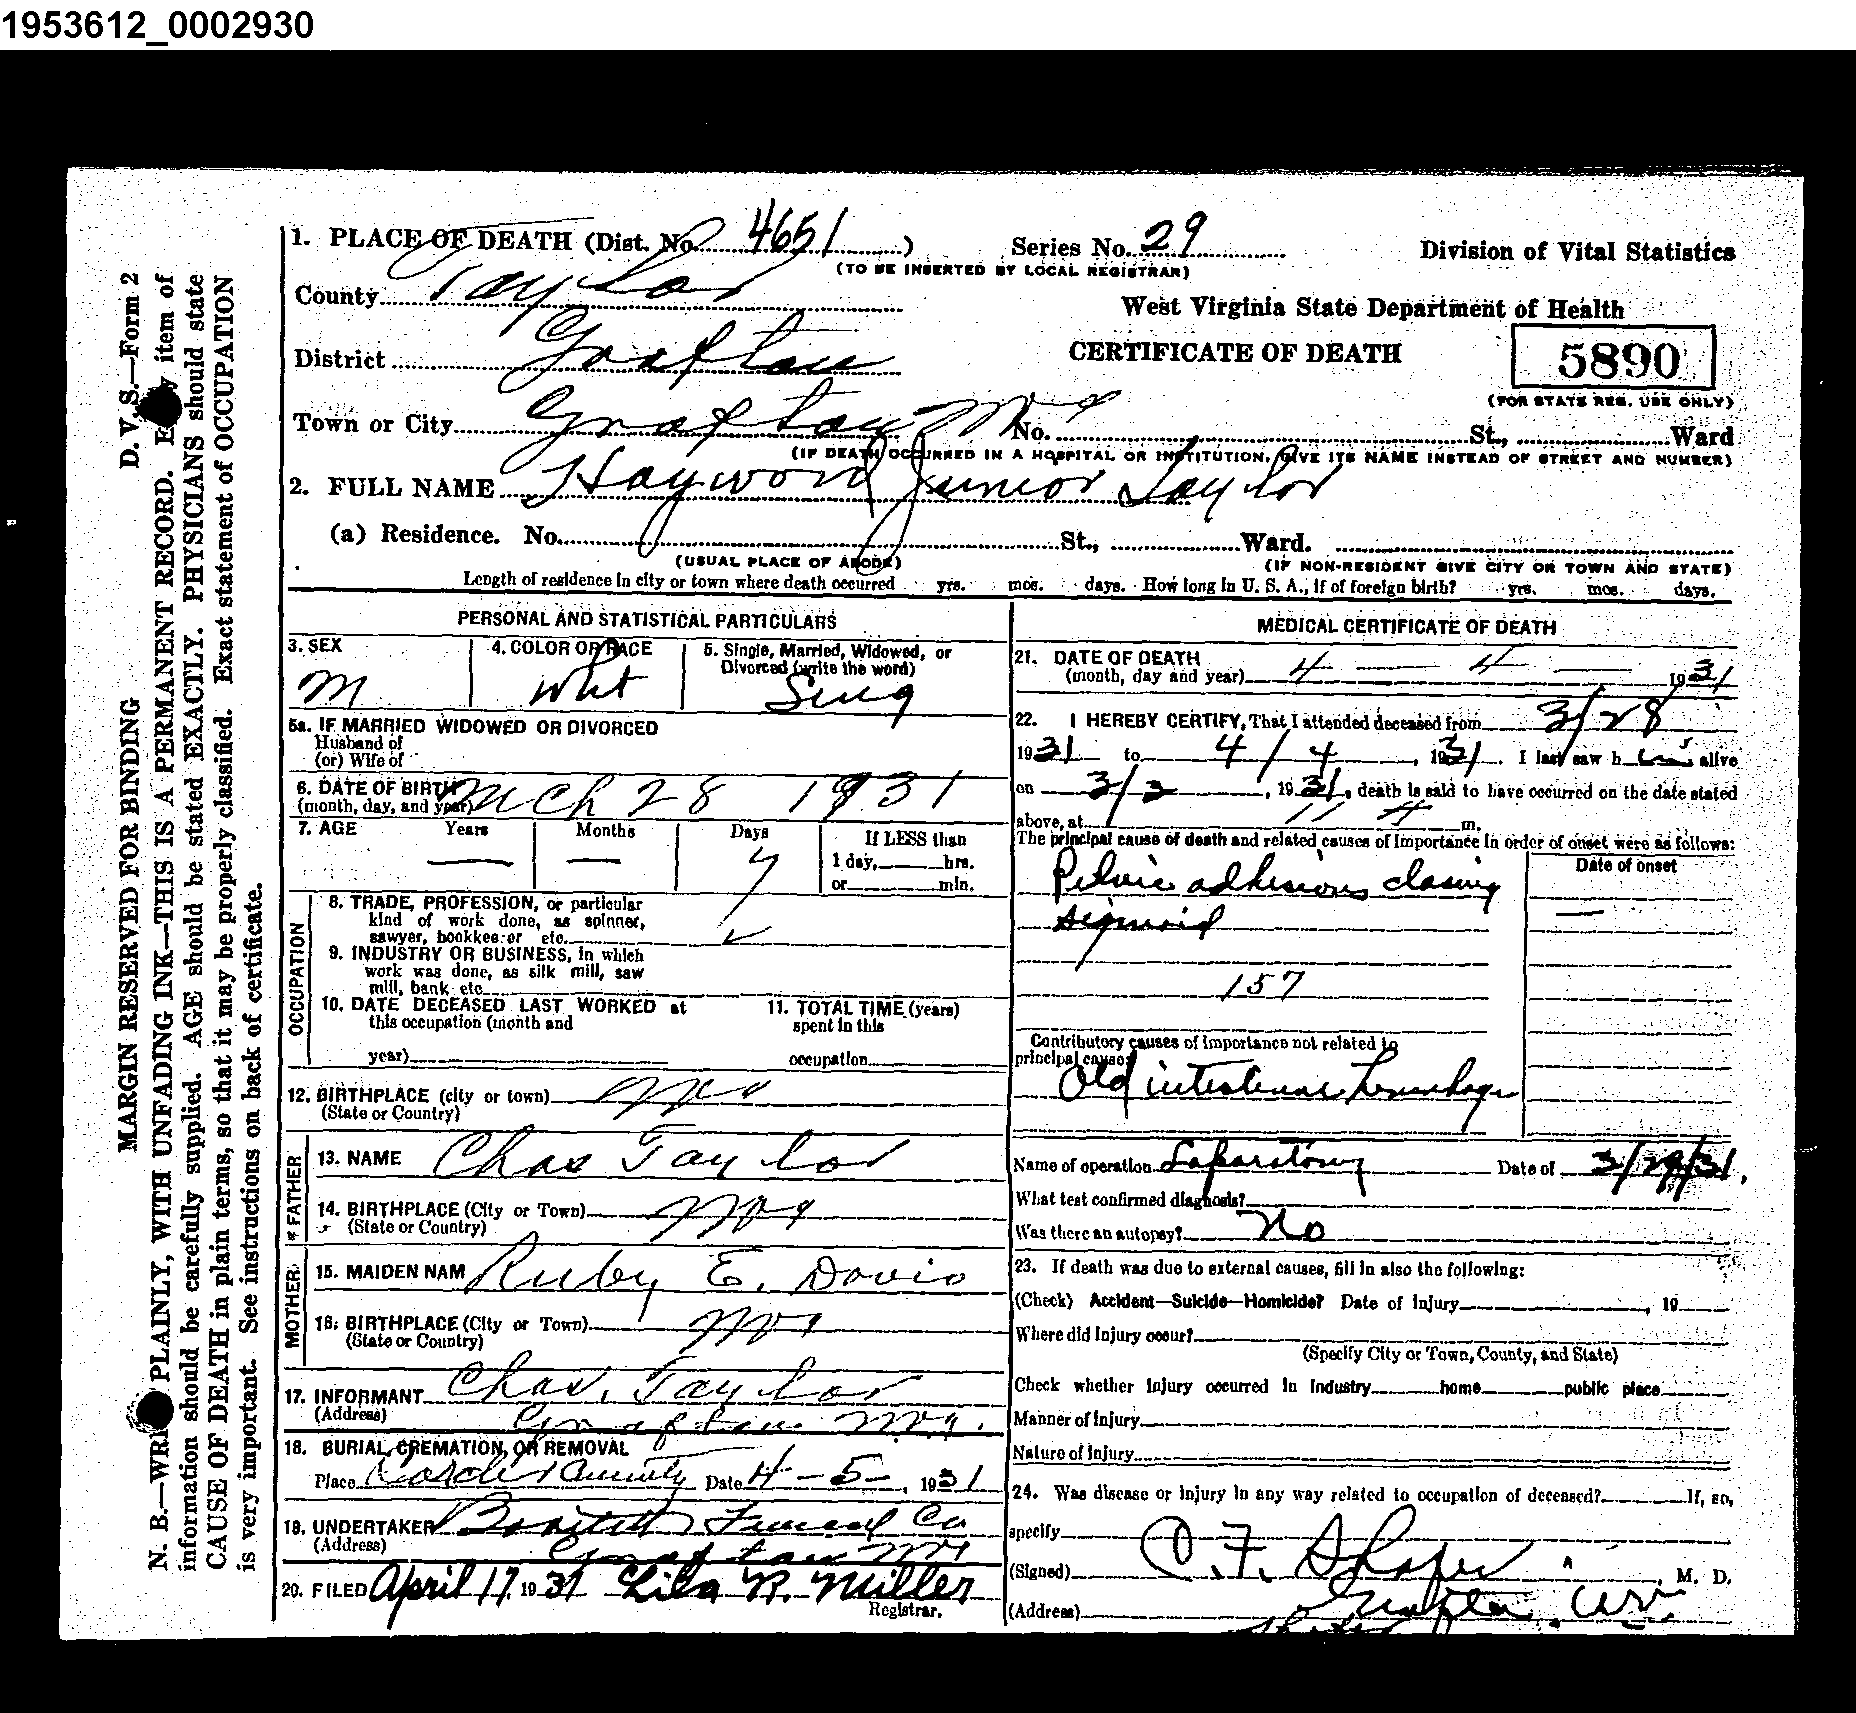 1953612_0002930
1. PLACE OF DEATH (Dist. No. 4651 ) Series No. 29 Division of Vital Statistics
(TO BE INSERTED BY LOCAL REGISTRAR)
County Taylor
West Virginia State Department of Health
District Grafton CERTIFICATE OF DEATH 5890
(FOR STATE REG. USE ONLY)
Town or City Grafton No. St., Ward
(IF DEATH OCCURRED IN A HOSPITAL OR INSTITUTION, GIVE ITS NAME INSTEAD OF STREET AND NUMBER)
2. FULL NAME Haywood Junior Taylor
(a) Residence. No. St., Ward.
(USUAL PLACE OF ABODE) (IF NON-RESIDENT GIVE CITY OR TOWN AND STATE)
Length of residence in city or town where death occurred yrs. mos. days. How long in U. S. A., if of foreign birth? yrs. mos. days.
PERSONAL AND STATISTICAL PARTICULARS
3. SEX 4. COLOR OR RACE 5. Single, Married, Widowed, or
Divorced (write the word)
M Wht Sing
5a. IF MARRIED WIDOWED OR DIVORCED
Husband of
(or) Wife of
6. DATE OF BIRTH Mch 28 1931
(month, day, and year)
7. AGE Years Months Days If LESS than
— — 7 1 day, hrs.
or min.
OCCUPATION
8. TRADE, PROFESSION, or particular
kind of work done, as spinner,
sawyer, bookkeeper etc.
9. INDUSTRY OR BUSINESS, in which
work was done, as silk mill, saw
mill, bank etc
10. DATE DECEASED LAST WORKED at 11. TOTAL TIME (years)
this occupation (month and spent in this
year) occupation
12. BIRTHPLACE (city or town)
(State or Country)
FATHER
13. NAME Chas Taylor
14. BIRTHPLACE (City or Town) W Va
(State or Country)
MOTHER
15. MAIDEN NAM Ruby E. Davis
16. BIRTHPLACE (City or Town) W Va
(State or Country)
17. INFORMANT Chas. Taylor
(Address) Grafton W Va.
18. BURIAL, CREMATION, OR REMOVAL
Place Date 4-5-, 1931
19. UNDERTAKER Funeral Co
(Address) Grafton W Va
20. FILED April 17 1931 Lila R. Miller
Registrar.
MEDICAL CERTIFICATE OF DEATH
21. DATE OF DEATH
(month, day and year) 4 — 4 — 1931
22. I HEREBY CERTIFY, That I attended deceased from 3/28
1931 to 4/4, 1931. I last saw h im alive
on 3/3, 1931, death is said to have occurred on the date stated
above, at 11 A m.
The principal cause of death and related causes of importance in order of onset were as follows:
Date of onset
Pelvic adhesions closing
sigmoid —
157
Contributory causes of importance not related to
principal cause:
Old intestinal hemorhage
Name of operation Laparotomy Date of 3/29/31.
What test confirmed diagnosis?
Was there an autopsy? No
23. If death was due to external causes, fill in also the following:
(Check) Accident—Suicide—Homicide? Date of Injury , 19
Where did injury occur?
(Specify City or Town, County, and State)
Check whether injury occurred in industry home public place
Manner of Injury
Nature of Injury
24. Was disease or injury in any way related to occupation of deceased? If, so,
specify
(Signed) C. F. Shafer , M. D.
(Address) Grafton, W.Va.
D. V. S.—Form 2
MARGIN RESERVED FOR BINDING
N. B.—WRI PLAINLY, WITH UNFADING INK—THIS IS A PERMANENT RECORD. E y item of
information should be carefully supplied. AGE should be stated EXACTLY. PHYSICIANS should state
CAUSE OF DEATH in plain terms, so that it may be properly classified. Exact statement of OCCUPATION
is very important. See instructions on back of certificate.